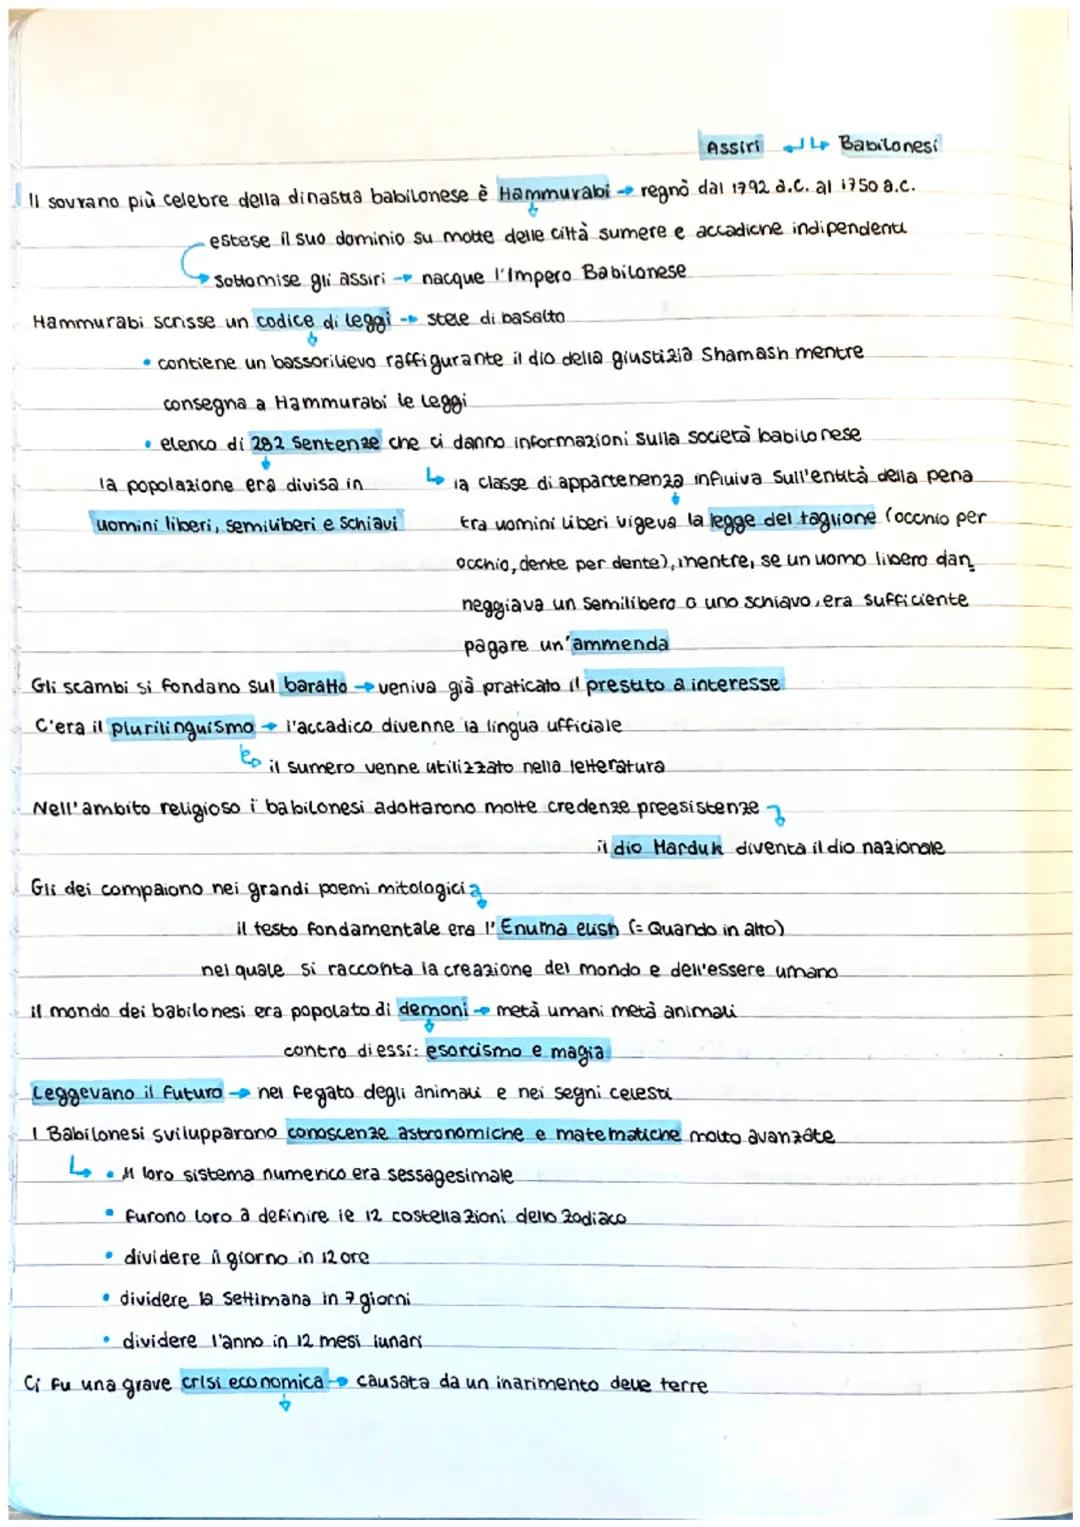 Assiri ↲↳ Babilonesi
Il sovrano più celebre della dinastia babilonese è Hammurabi → regnò dal 1792 a.C. al 1750 a.C.
estese il suo dominio su molte delle città sumere e accadiche indipendenti
sottomise gli assiri → nacque l'Impero Babilonese
Hammurabi scrisse un codice di leggi → stele di basalto
• contiene un bassorilievo raffigurante il dio della giustizia Shamash mentre
consegna a Hammurabi le leggi
• elenco di 282 sentenze che ci danno informazioni sulla società babilonese
la popolazione era divisa in
uomini liberi, semiliberi e schiavi
↳ la classe di appartenenza influiva sull'entità della pena
tra uomini liberi vigeva la legge del taglione (occhio per
occhio, dente per dente), mentre, se un uomo libero dan
neggiava un semilibero o uno schiavo, era sufficiente
pagare un'ammenda
Gli scambi si fondano sul baratto → veniva già praticato il prestito a interesse
C'era il plurilinguismo → l'accadico divenne la lingua ufficiale
↳ il sumero venne utilizzato nella letteratura
Nell'ambito religioso i babilonesi adottarono molte credenze preesistenze
il dio Marduk diventa il dio nazionale
Gli dei compaiono nei grandi poemi mitologici
il testo fondamentale era l'Enuma elish (= Quando in alto)
nel quale si racconta la creazione del mondo e dell'essere umano
il mondo dei babilonesi era popolato di demoni → metà umani metà animali
contro di essi: esorcismo e magia
Leggevano il futuro → nel fegato degli animali e nei segni celesti
I Babilonesi svilupparono conoscenze astronomiche e matematiche molto avanzate
↳ • Il loro sistema numerico era sessagesimale
• furono loro a definire le 12 costellazioni dello zodiaco
• dividere il giorno in 12 ore
• dividere la settimana in 7 giorni
• dividere l'anno in 12 mesi lunari
Ci fu una grave crisi economica → causata da un inarimento delle terre